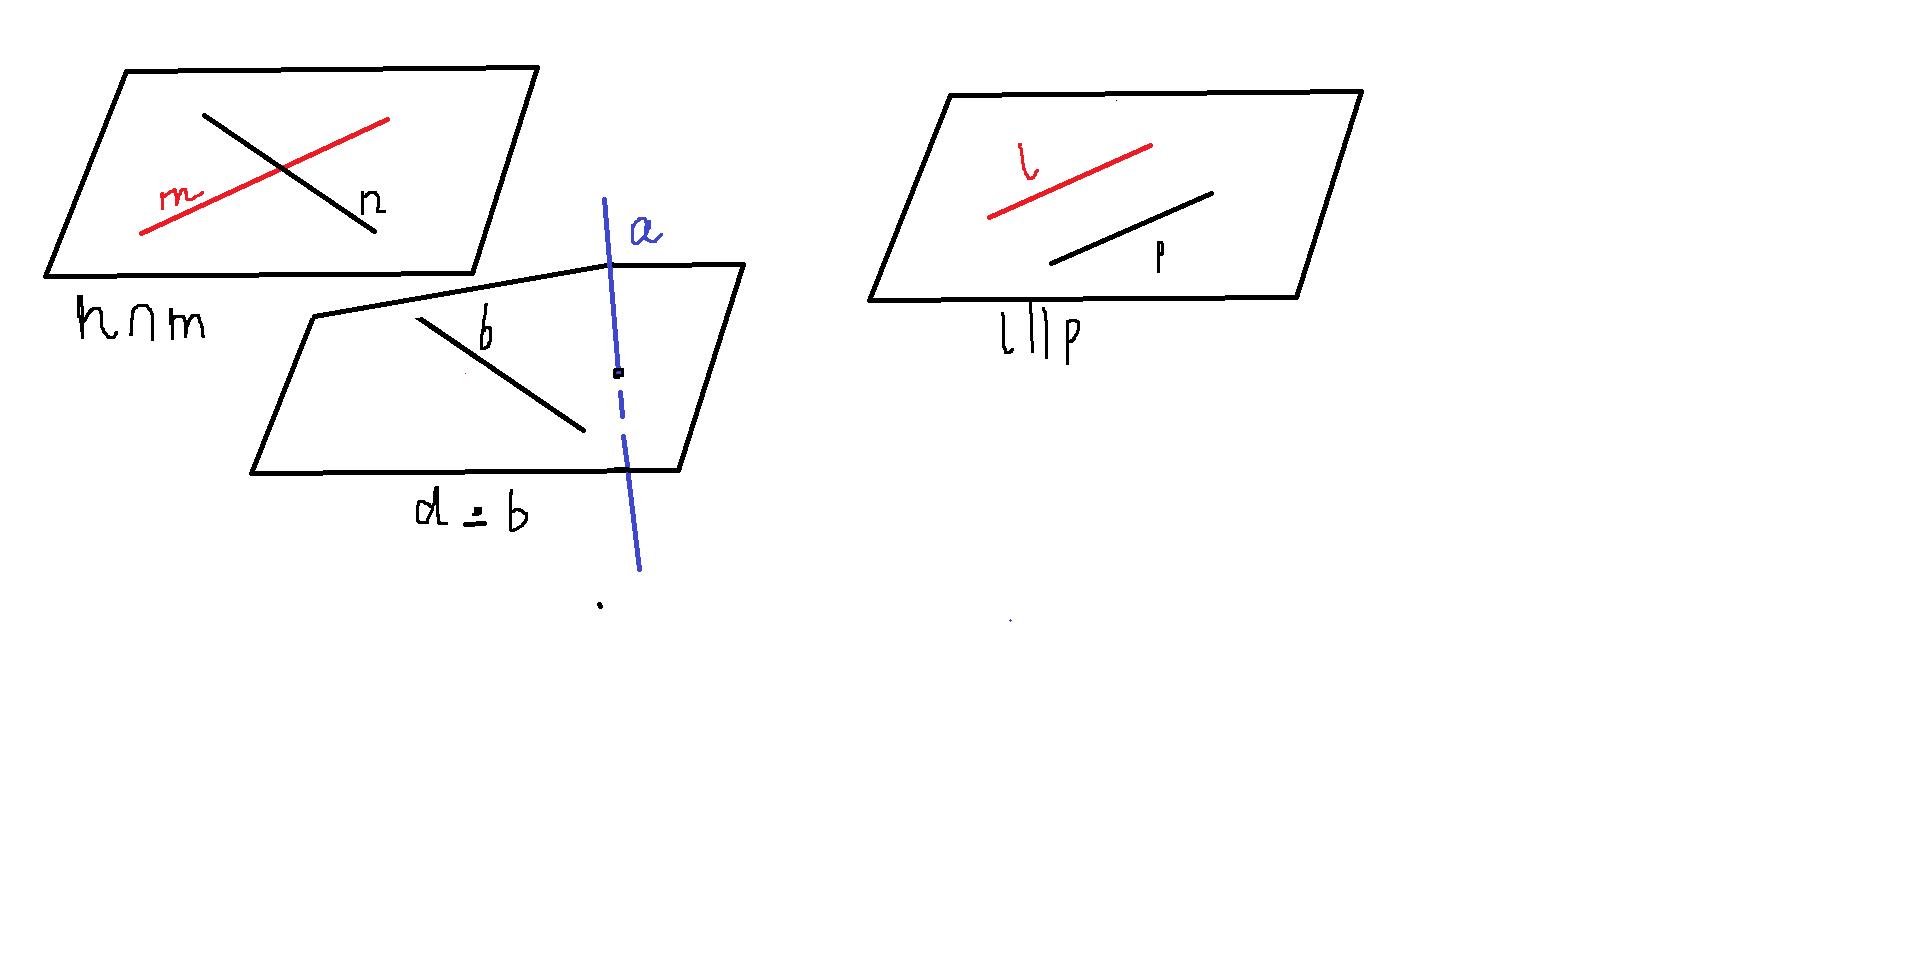 m
n
n ∩ m
a
b
d ∸ b
l
p
l || p